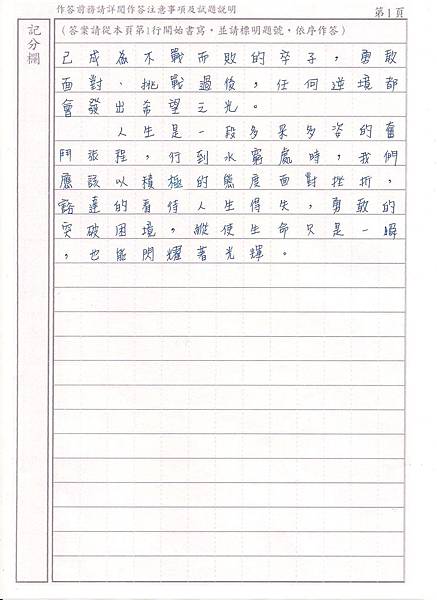 作答前務請詳閱作答注意事項及試題說明
第1頁
記分欄
（答案請從本頁第1行開始書寫，並請標明題號，依序作答）
己成為不戰而敗的卒子，勇敢
面對、挑戰過後，任何逆境都
會發出希望之光。
人生是一段多采多姿的奮
鬥旅程，行到水窮處時，我們
應該以積極的態度面對挫折，
豁達的看待人生得失，勇敢的
突破困境，縱使生命只是一瞬
，也能閃耀著光輝。